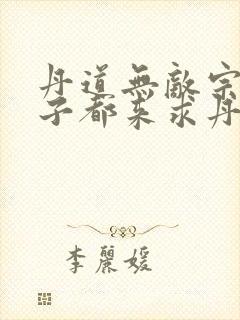 丹道無敵宗
子都來求丹
李麗媛